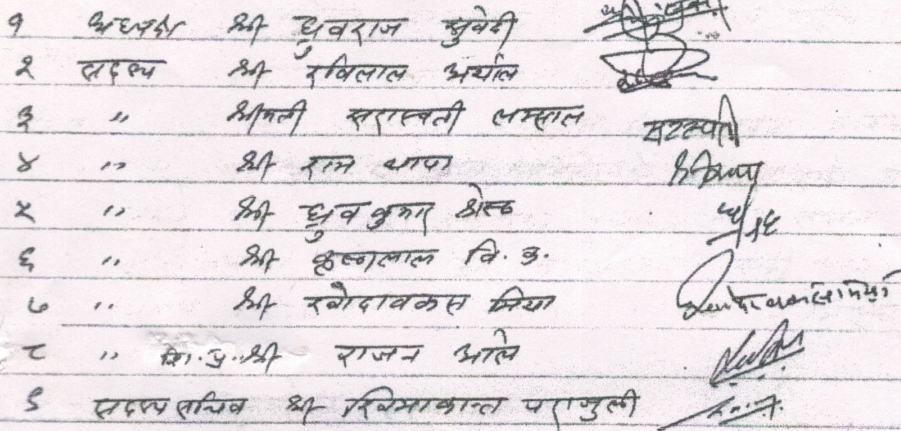 १ अध्यक्ष श्री ध्रुवराज सुवेदी
२ सदस्य श्री रविलाल अर्याल
३ " श्रीमती सरास्वती लम्साल सरस्वती
४ " श्री राम थापा
५ " श्री ध्रुव कुमार श्रेष्ठ
६ " श्री कृष्णलाल वि. क.
७ " श्री खोदावकस मिया
८ " शि. प्र. श्री राजन ओले
९ सदस्य सचिव श्री खिमाकान्त पराजुली